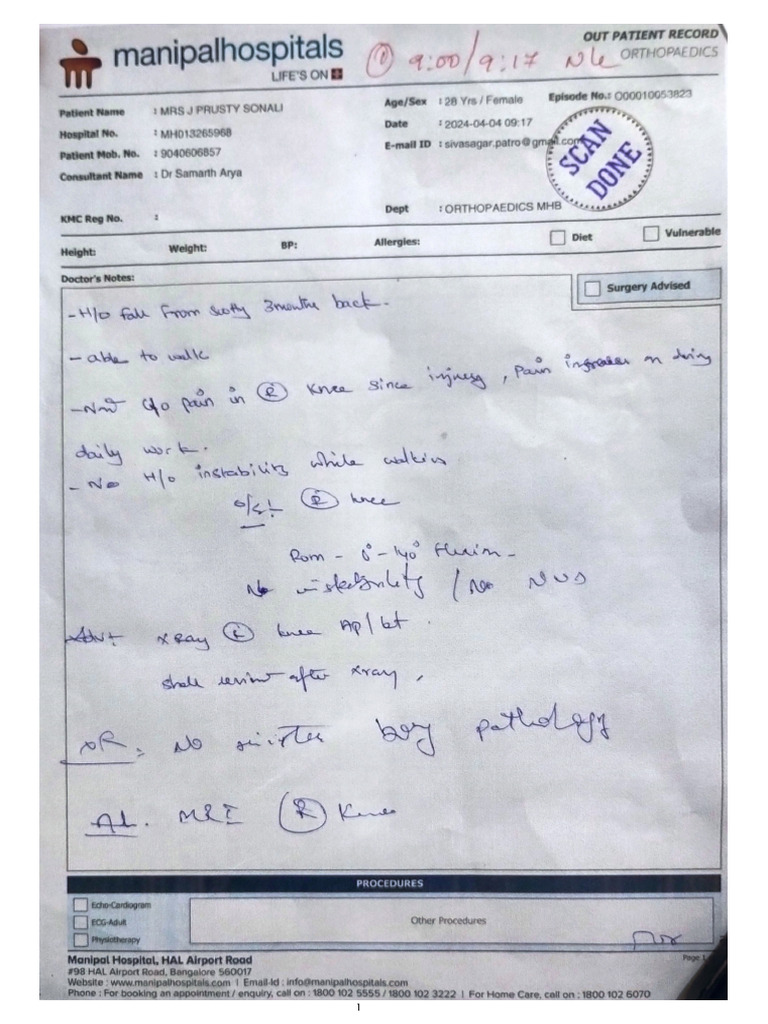 manipalhospitals
LIFE'S ON
① 9:00/9:17
OUT PATIENT RECORD
ORTHOPAEDICS
Patient Name : MRS J PRUSTY SONALI
Age/Sex : 28 Yrs / Female
Episode No.: O00010053823
Hospital No. : MH013265968
Date : 2024-04-04 09:17
Patient Mob. No. : 9040606857
E-mail ID : sivasagar.patro@gmail.com
SCAN DONE
Consultant Name : Dr Samarth Arya
KMC Reg No. :
Dept : ORTHOPAEDICS MHB
Height: Weight: BP: Allergies: Diet Vulnerable
Doctor's Notes:
Surgery Advised
- H/o fall from scooty 3 months back.
- able to walk
- Now c/o pain in Ⓡ Knee since injury, Pain increases on doing
daily work.
- No H/o instability while walking
o/e :- Ⓡ knee
Rom - 0° - 140° flexion -
No instability / No NVD
Adv :- xray Ⓡ knee AP/lat.
shall review after xray,
XR : No sinister bony pathology
Ad. MRI Ⓡ Knee
PROCEDURES
Echo-Cardiogram
ECG-Adult
Physiotherapy
Other Procedures
Page 1
Manipal Hospital, HAL Airport Road
#98 HAL Airport Road, Bangalore 560017
Website : www.manipalhospitals.com | Email-Id : info@manipalhospitals.com
Phone : For booking an appointment / enquiry, call on : 1800 102 5555 / 1800 102 3222 | For Home Care, call on : 1800 102 6070
1